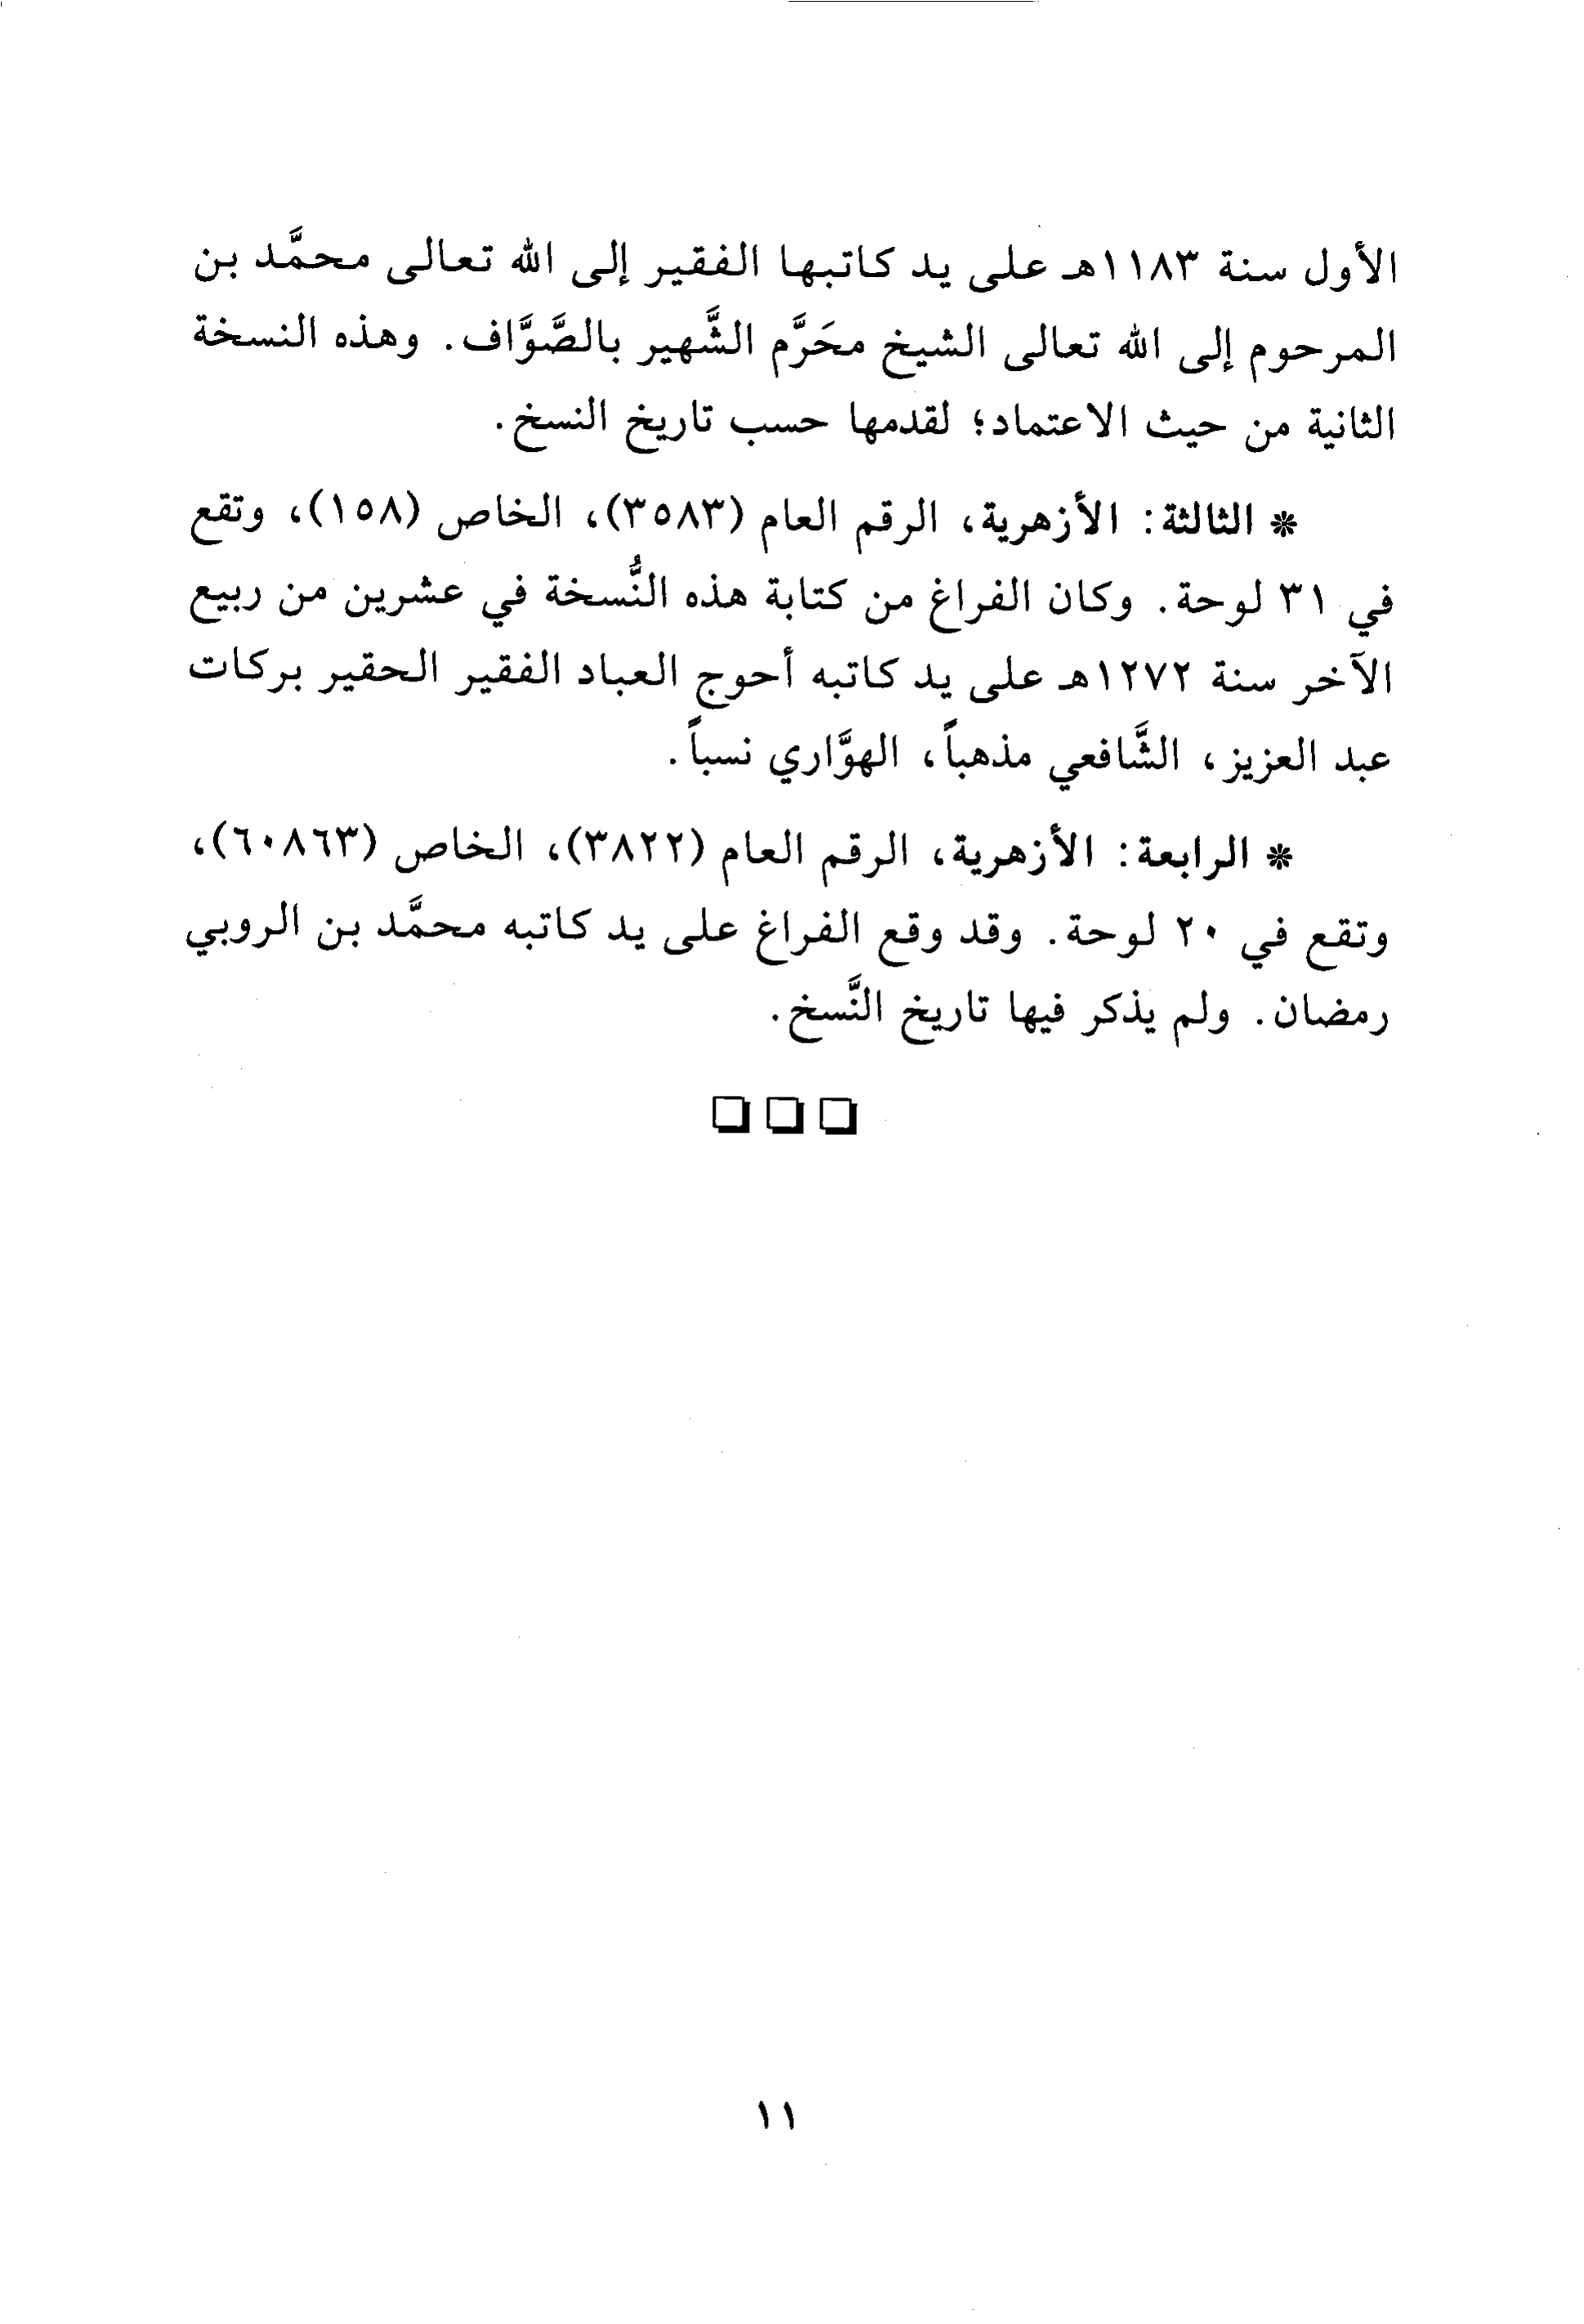 الأول سنة ١١٨٣هـ على يد كاتبها الفقير إلى الله تعالى محمَّد بن
المرحوم إلى الله تعالى الشيخ محَرَّم الشَّهير بالصَّوَّاف. وهذه النسخة
الثانية من حيث الاعتماد؛ لقدمها حسب تاريخ النسخ.
* الثالثة: الأزهرية، الرقم العام (٣٥٨٣)، الخاص (١٥٨)، وتقع
في ٣١ لوحة. وكان الفراغ من كتابة هذه النُّسخة في عشرين من ربيع
الآخر سنة ١٢٧٢هـ على يد كاتبه أحوج العباد الفقير الحقير بركات
عبد العزيز، الشَّافعي مذهباً، الهوَّاري نسباً.
* الرابعة: الأزهرية، الرقم العام (٣٨٢٢)، الخاص (٦٠٨٦٣)،
وتقع في ٢٠ لوحة. وقد وقع الفراغ على يد كاتبه محمَّد بن الروبي
رمضان. ولم يذكر فيها تاريخ النَّسخ.
١١